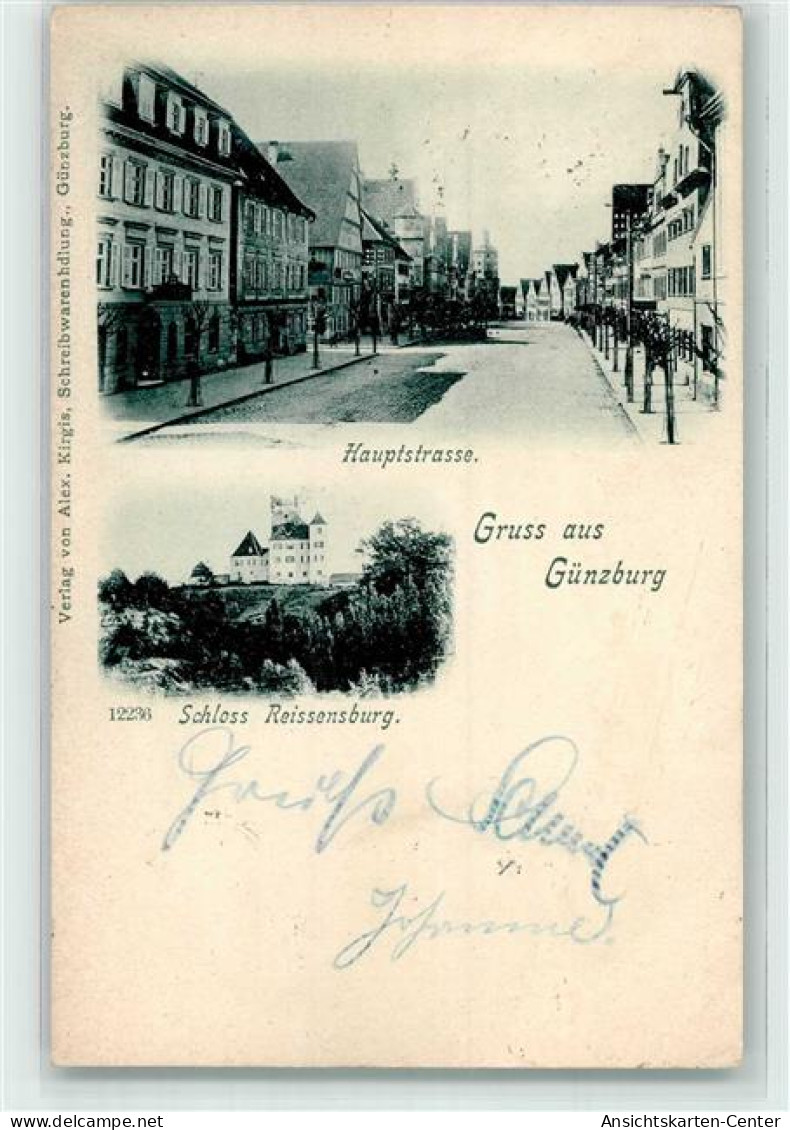 Verlag von Alex. Kirgis, Schreibwarenhdlung., Günzburg.
Hauptstrasse.
Gruss aus
Günzburg
12236 Schloss Reissensburg.
Gruß
Johanna
Ansichtskarten-Center